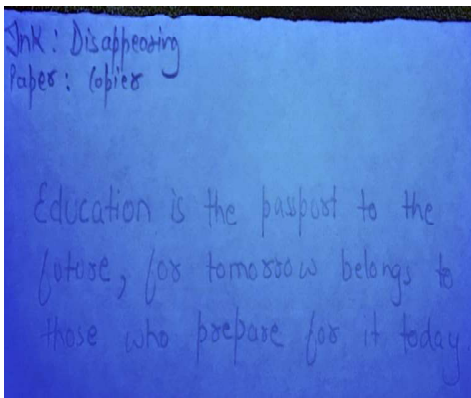 Ink: Disappearing
Paper: Copier
Education is the passport to the
future, for tomorrow belongs to
those who prepare for it today